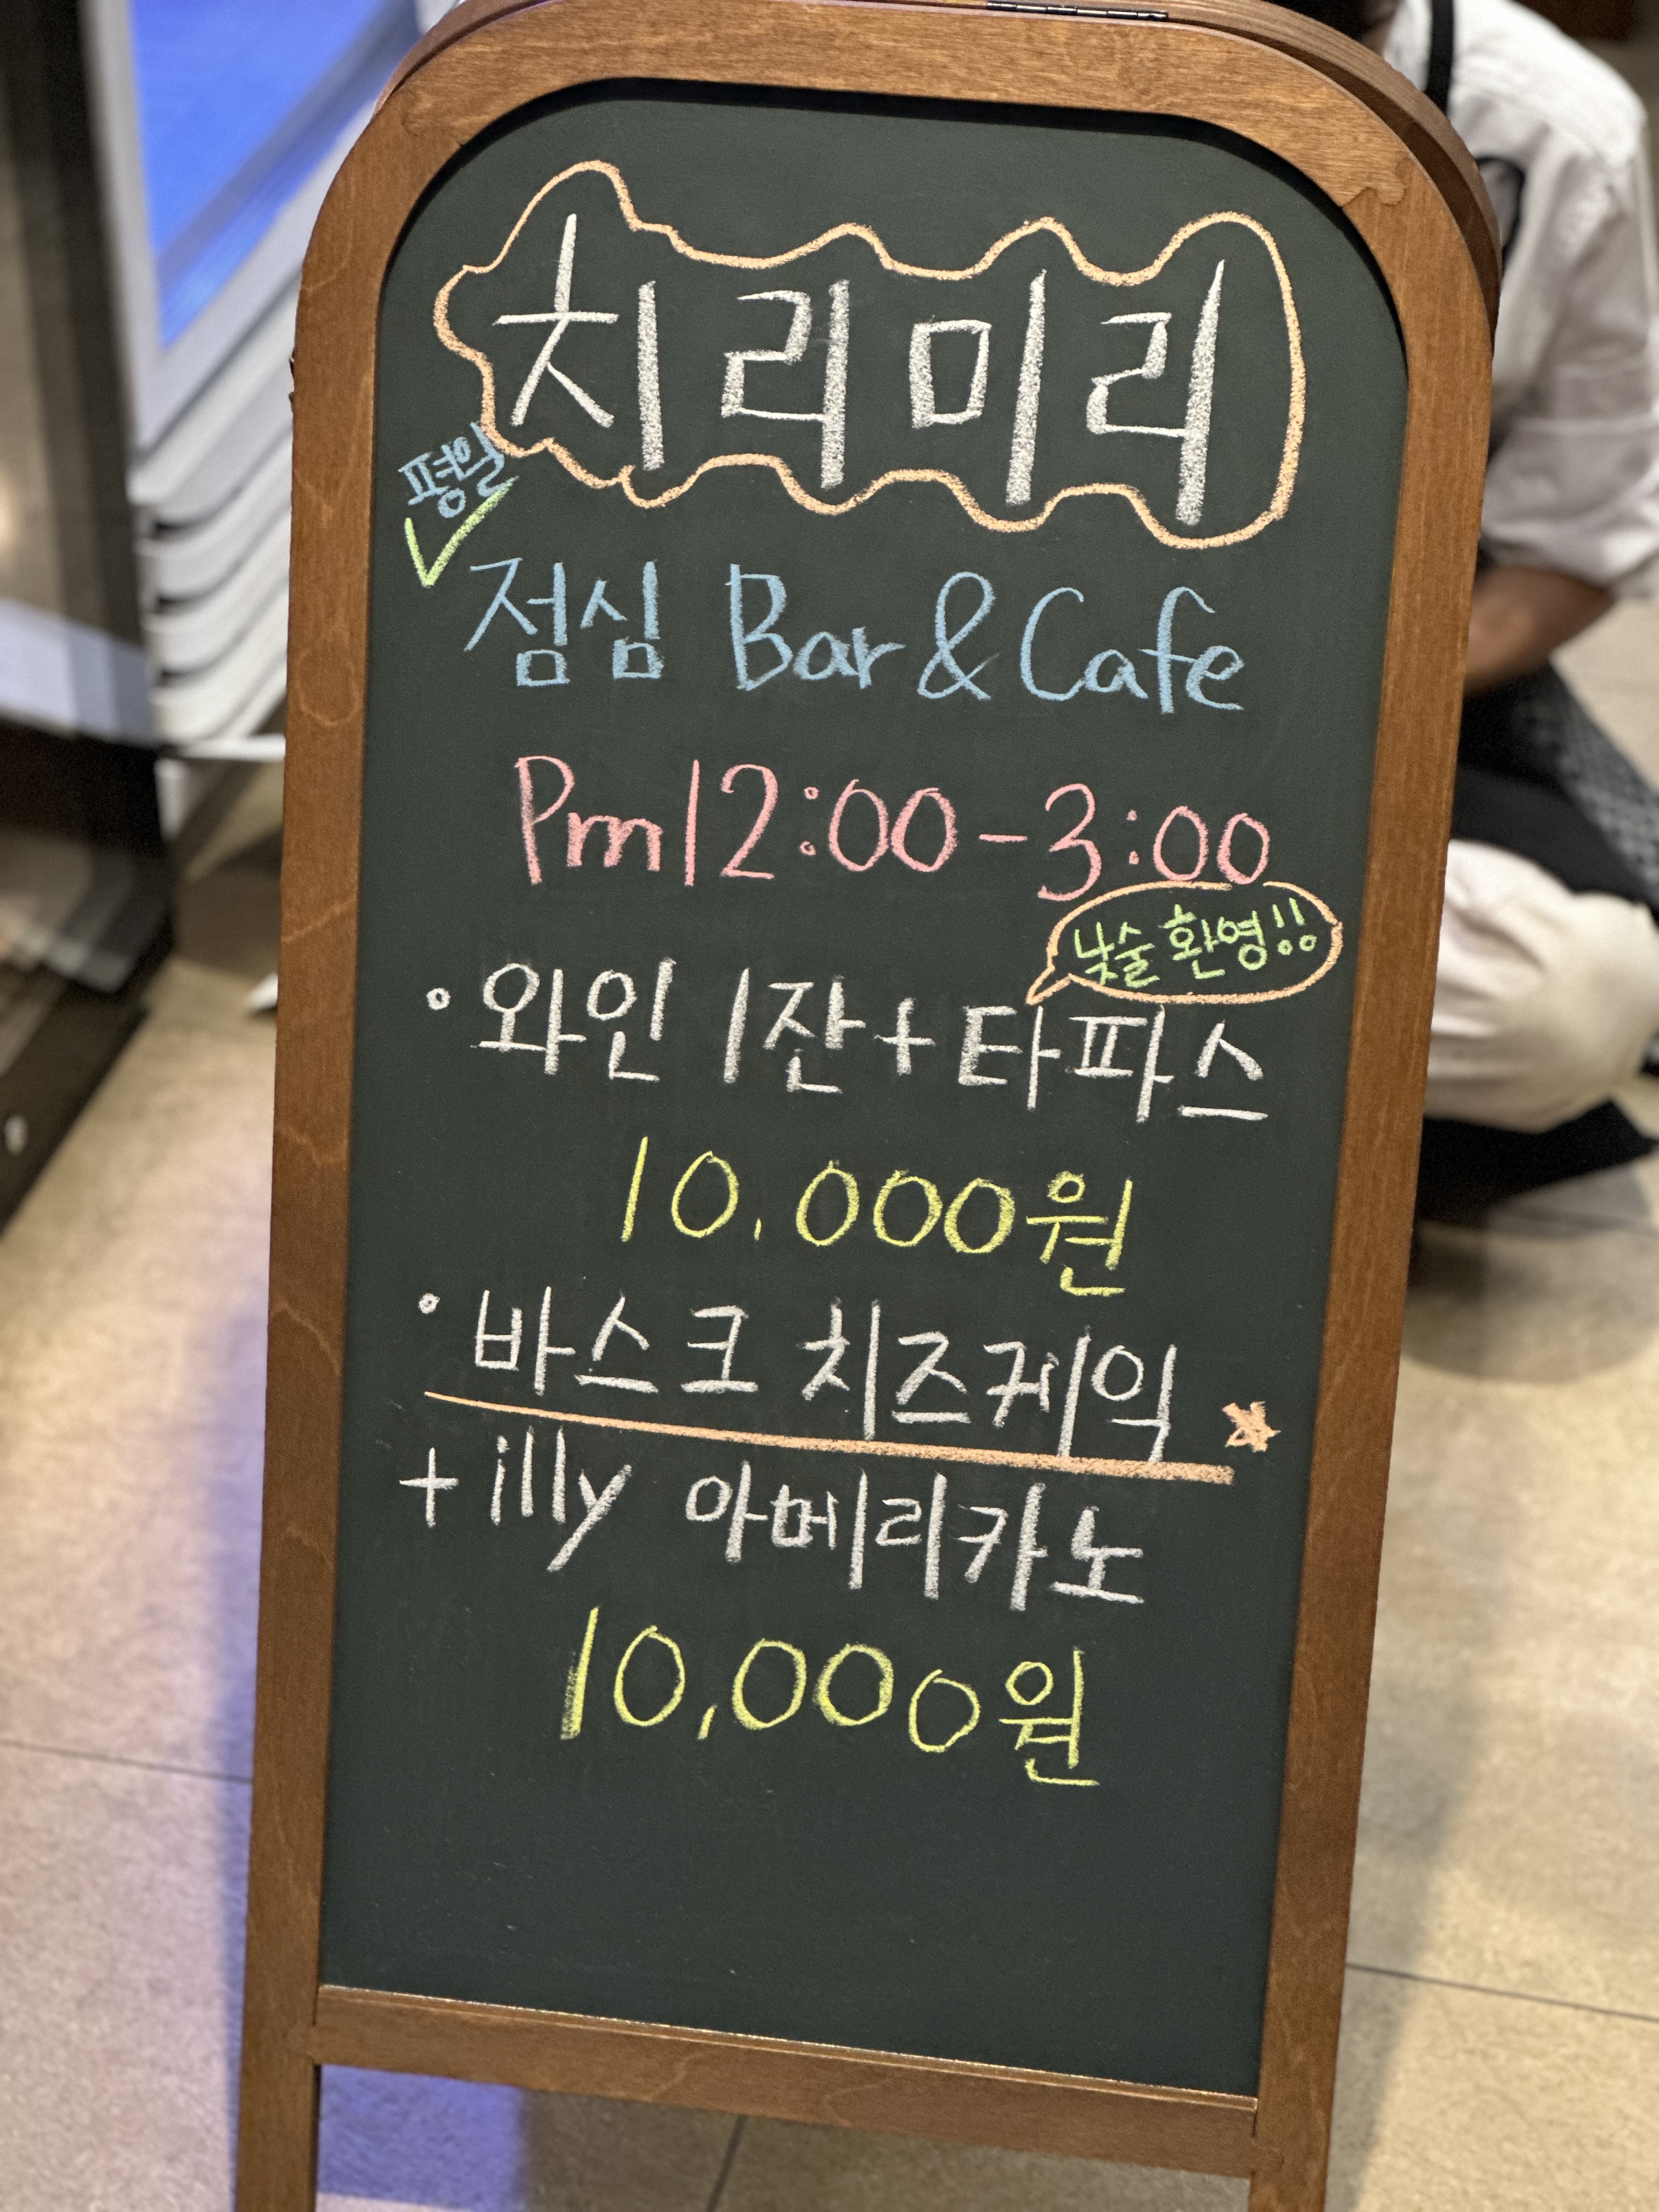 치리미리
평일
점심 Bar & Cafe
Pm 12:00 - 3:00
낮술 환영!!
· 와인 1잔 + 타파스
10,000원
· 바스크 치즈케익
+ illy 아메리카노
10,000원